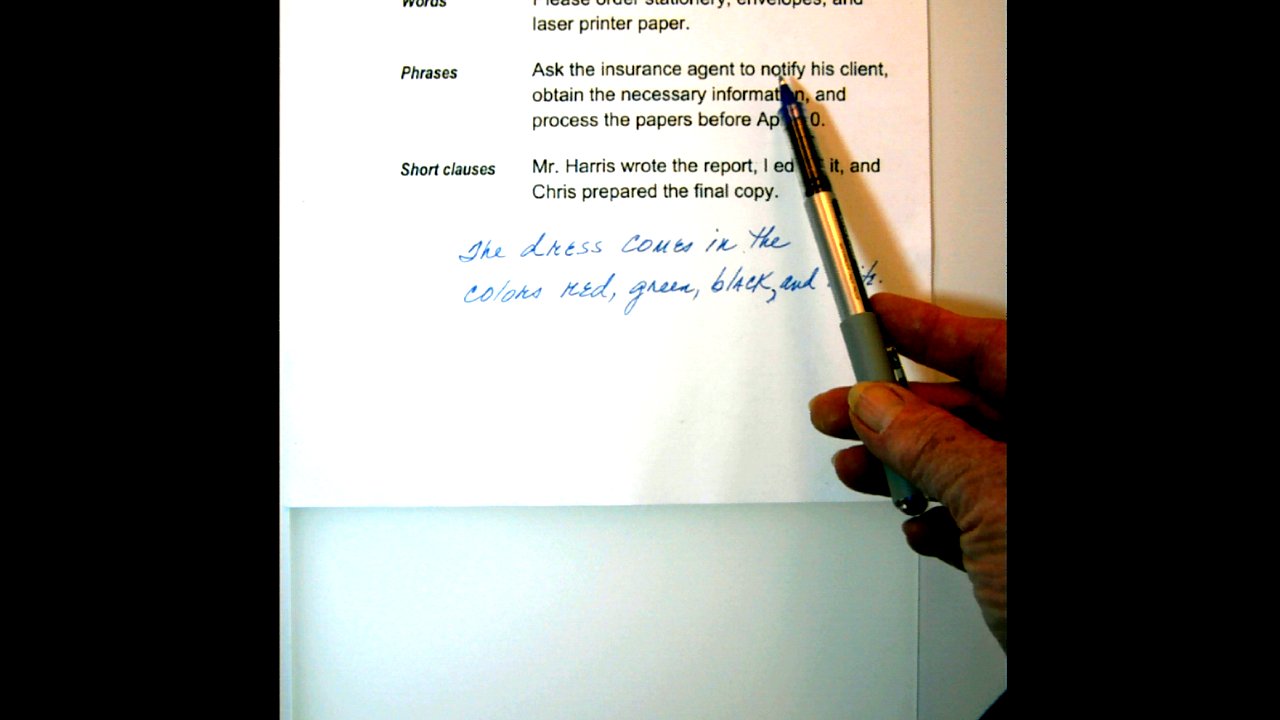 Words
Please order stationery, envelopes, and
laser printer paper.
Phrases
Ask the insurance agent to notify his client,
obtain the necessary information, and
process the papers before Ap 0.
Short clauses
Mr. Harris wrote the report, I ed it, and
Chris prepared the final copy.
The dress comes in the
colors red, green, black, and